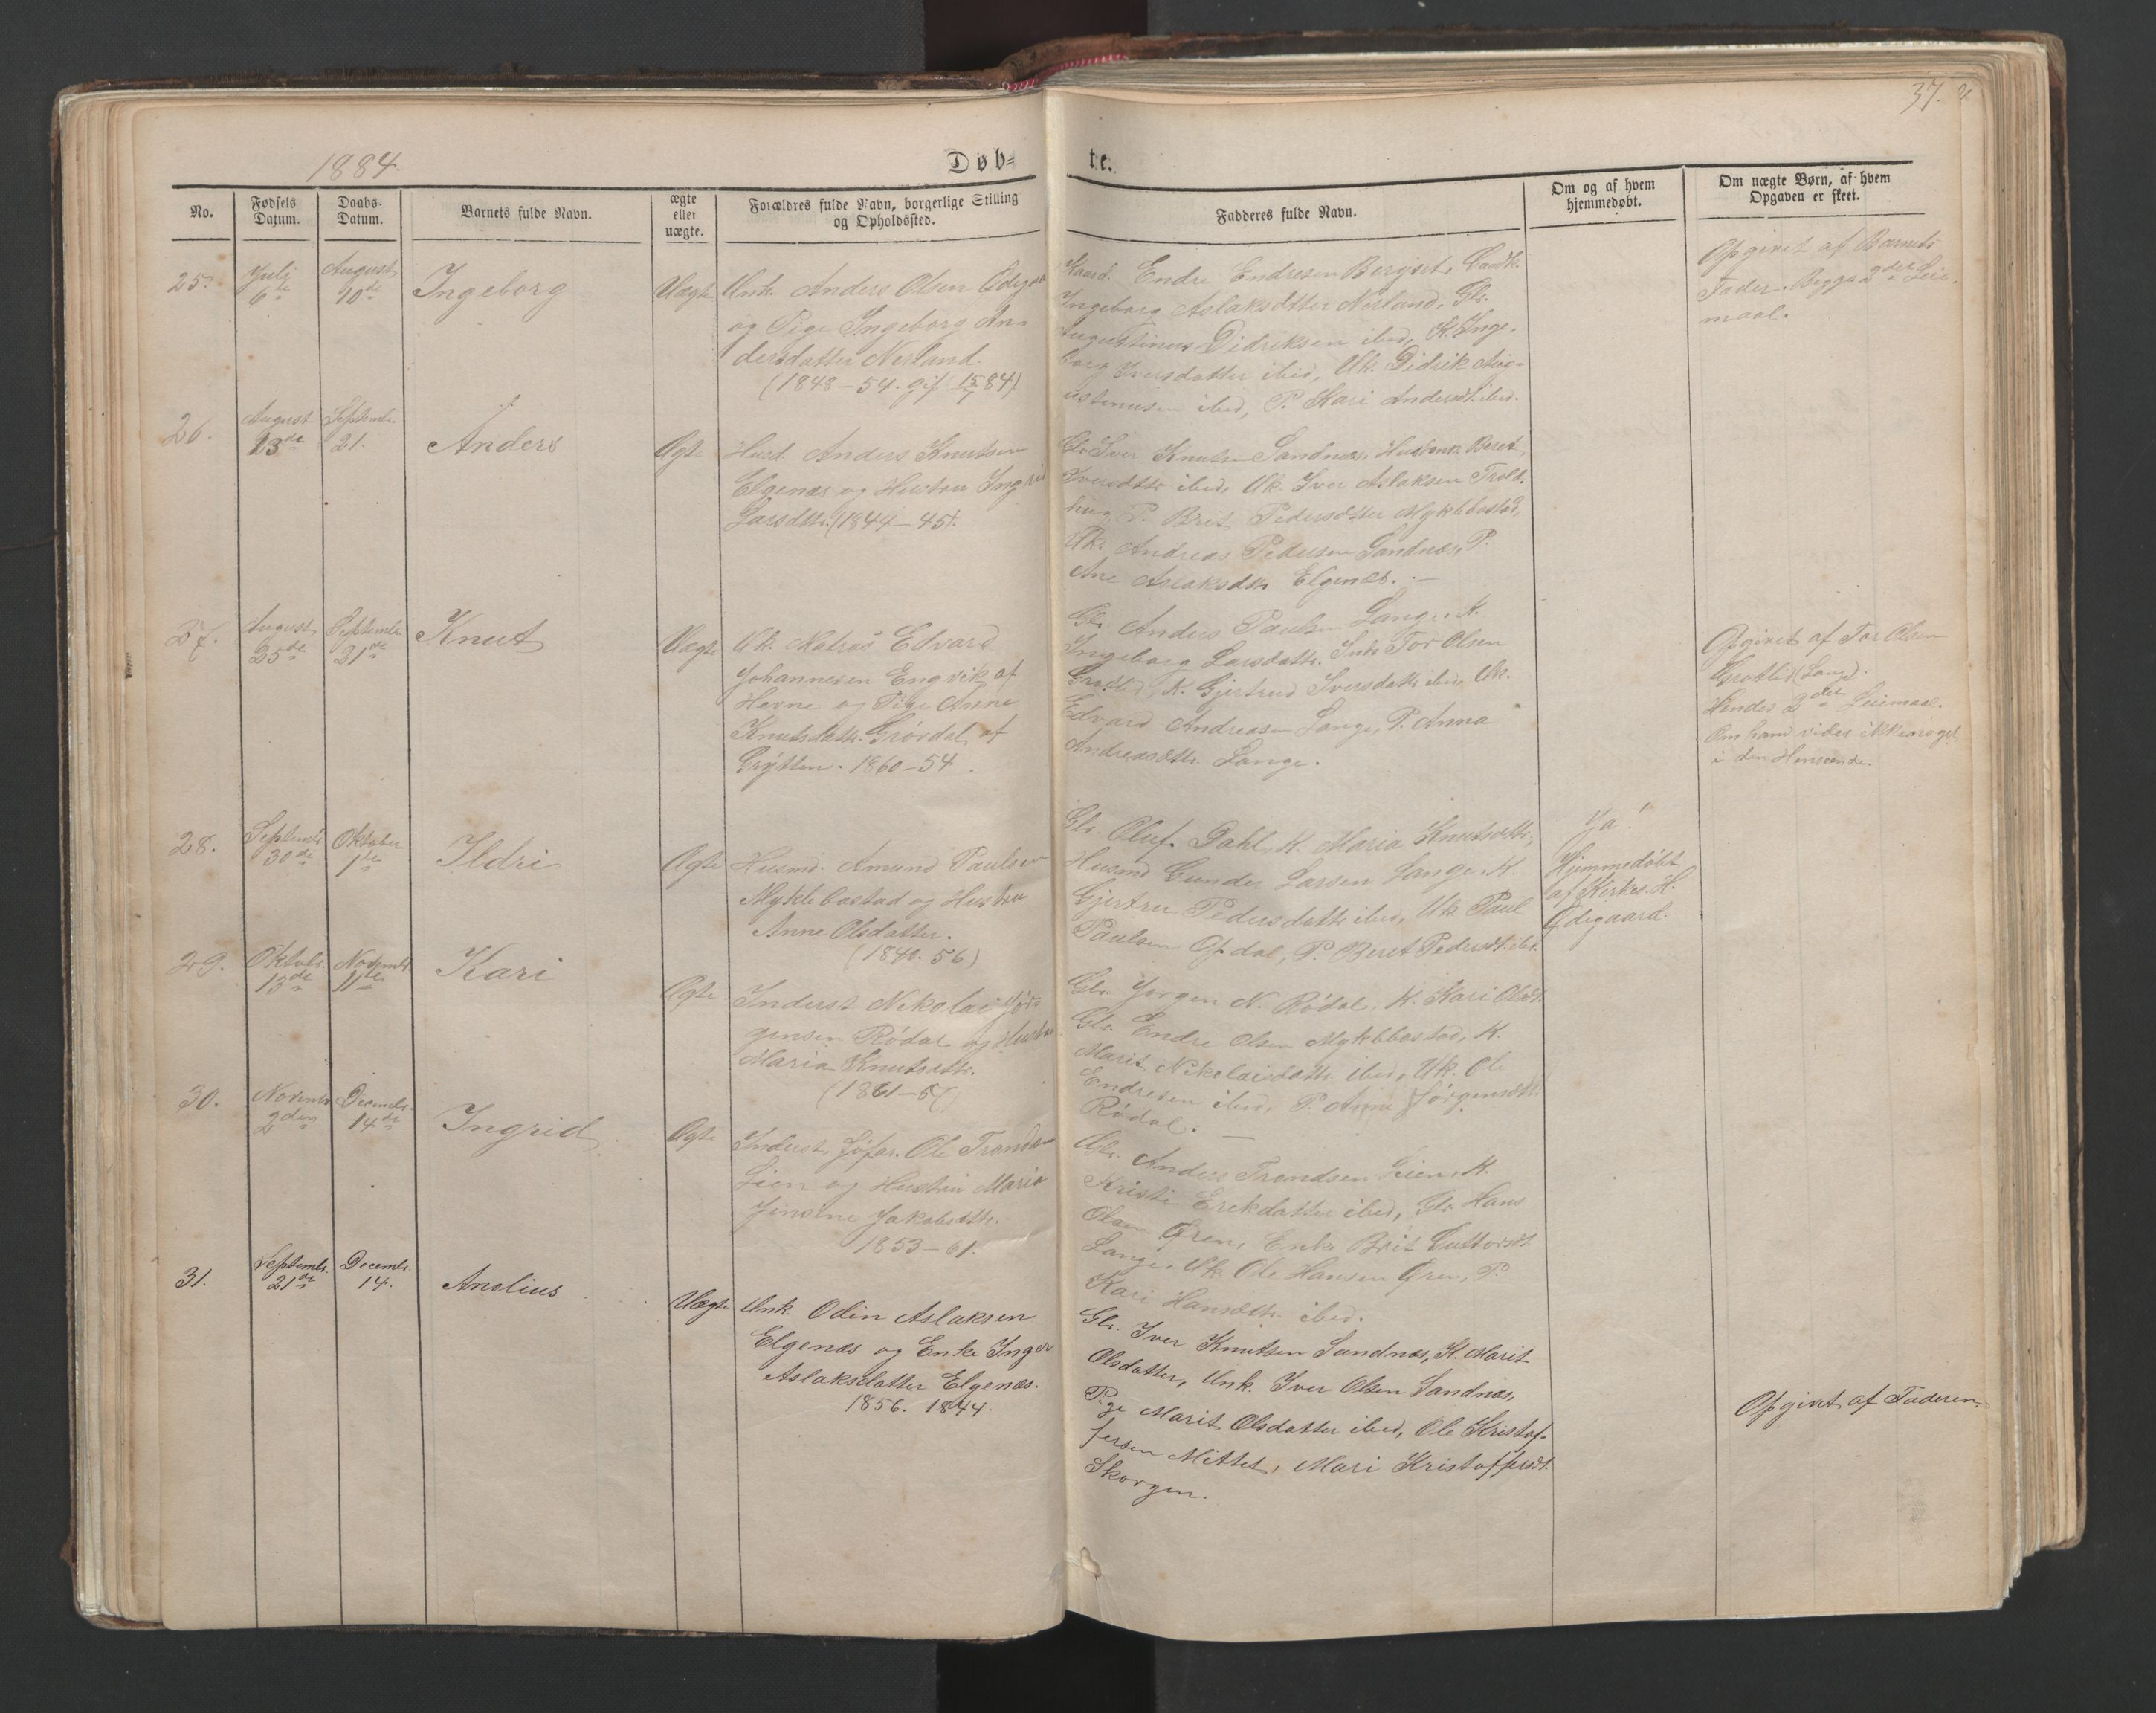 37.
1884.
Døb=
te.
No.
Fødsels Datum.
Daabs-Datum.
Barnets fulde Navn.
ægte eller uægte.
Forældres fulde Navn, borgerlige Stilling og Opholdssted.
Fadderes fulde Navn.
Om og af hvem hjemmedøbt.
Om uægte Børn, af hvem Opgaven er skeet.
25.
Juli
6te
August
10de
Ingeborg
Uægte
Unk. Anders Olsen
og Pige Ingeborg An-
dersdatter Nerland.
(1848–54. gif 15/7 84)
Gaard. Endre Endresen Bergset,
Ingeborg Aslaksdtter Nerland, Gbr.
Augustinus Didriksen ibid, K. Inge-
borg Iversdatter ibid, Uk. Didrik Aug-
ustinusen ibid, P. Kari Andersdt. ibid.
Opgivet af Barnets
Fader. Begges 2det Leie-
maal.
26.
August
23de
Septembr.
21.
Anders
Ægte
Husd. Anders Knutsen
Elgenæs og Hustru Ingrid
Larsdtr. (1844–45).
Gbr. Iver Knutsen Sandnæs, Hustru Beret
Iversdtr ibid, Uk. Iver Aslaksen Trold-
hug, P. Brit Pedersdtter Myklebostad,
Uk. Andreas Pedersen Sandnæs, P.
Ane Aslaksdtr Elgenæs. –
27.
August
25de
Septembr
21de
Knut
Uægte
Uk. Matros Edvard
Johannesen Engvik af
Havne og Pige Anne
Knutsdatr. Grøvdal af
Grytten. 1860–54.
Gbr. Anders Paulsen Lange, K.
Ingeborg Larsdattr. Inds Tor Olsen
Grotlid, K. Gjertrud Iversdatr ibid, Uk.
Edvard Andreasen Lange, P. Anna
Andreasdtr. Lange.
Opgivet af Tor Olsen
Grotlid (Lange).
Hendes 2det Leiemaal.
Om ham vides ikke noget
i den Henseende.
28.
Septembr
30de
Oktober
1te
Ildri
Ægte
Husmd. Amund Paulsen
Myklebostad og Hustru
Anne Olsdatter.
(1840. 56)
Gbr. Oluf Dahl, K. Maria Knutsdtr,
Husmd Gunder Larsen Lange, K.
Gjertru Pedersdattr ibid, Uk. Paul
Paulsen Opdal, P. Beret Pedersdt. ibd.
Ja!
Hjemmedøbt
af Kirkes. H.
Ødegaard.
29.
Oktobr.
13de
Novembr.
11te
Kari
Ægte
Inderst Nikolai Jør-
gensen Rødal og Hustru
Maria Knutsdtr.
(1861–57)
Gbr. Jørgen N. Rødal, K. Kari Olsdt.
Gbr. Endre Olsen Myklebostad, K.
Marit Nikolaisdattr. ibid, Uk. Ole
Endresen ibid, P. Anne Jørgensdtr
Rødal. –
30.
Novembr
2den
Decembr.
14de
Ingrid
Ægte
Inderst, Sjøfar. Ole Trondsen
Lien og Hustru Maria
Jensine Jakobsdtr.
1853–61.
Gbr. Anders Trondsen Lien, K.
Kristi Erekdatter ibid, Gbr. Hans
Olsen Gren, Enke Brit Guttormsdt
Lange, Uk. Ole Hansen Gren, P.
Kari Hansdtr. ibid.
31.
Septembr.
21de
Decembr.
14.
Anelius
Uægte
Unk. Odin Aslaksen
Elgenæs og Enke Inger
Aslaksdatter Elgenæs.
1856. 1844.
Gbr. Iver Knutsen Sandnæs, K. Marit
Olsdatter, Unk. Iver Olsen Sandnæs,
Pige Marit Olsdatter ibid, Ole Kristof-
fersen Mittet, Mari Kristoffersdt.
Skorgen.
Opgivet af Faderen.